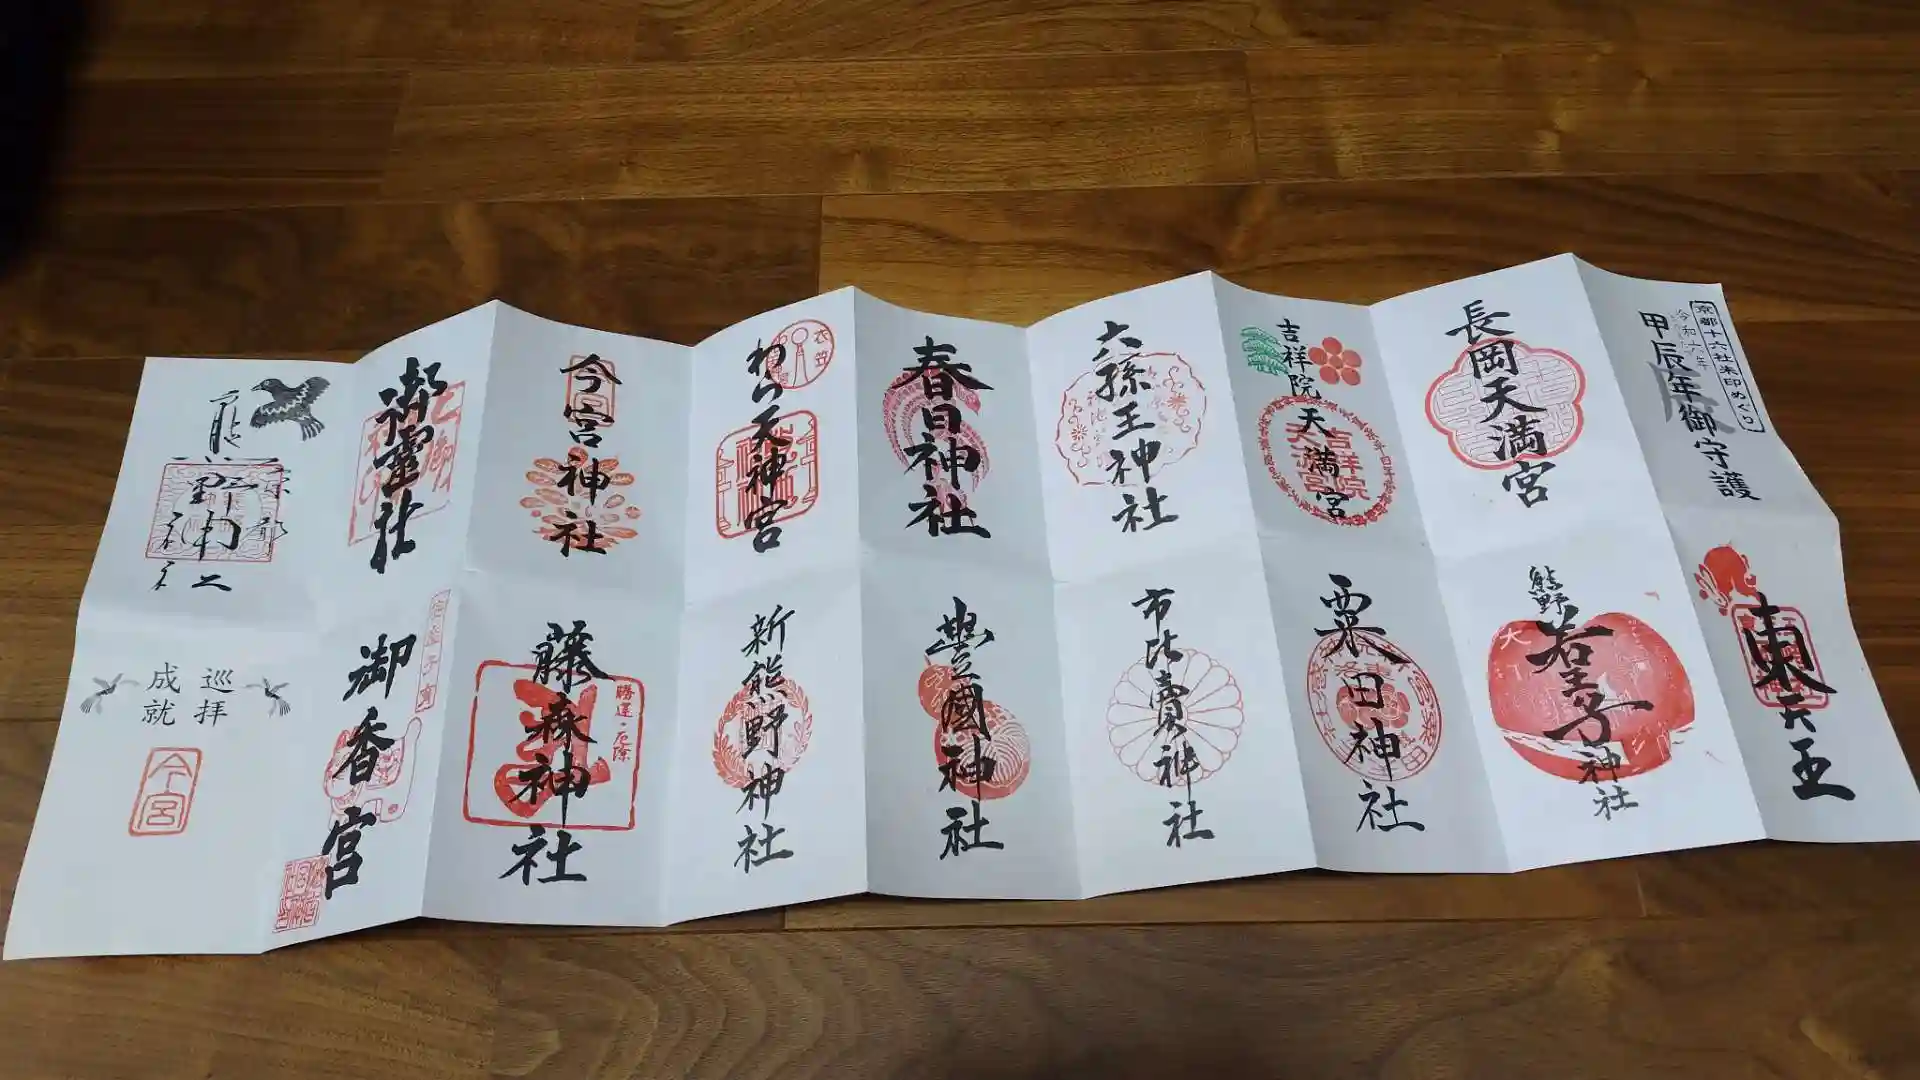 京都十六社朱印めぐり
令和六年
甲辰年御守護
長岡天満宮
吉祥院天満宮
六孫王神社
春日神社
衣笠
わら天神宮
今宮神社
御霊社
熊野神社
東天王
熊野若王子神社
大
粟田神社
市比賣神社
豐國神社
新熊野神社
藤森神社
勝運・厄除
御香宮
巡拝
成就
今宮